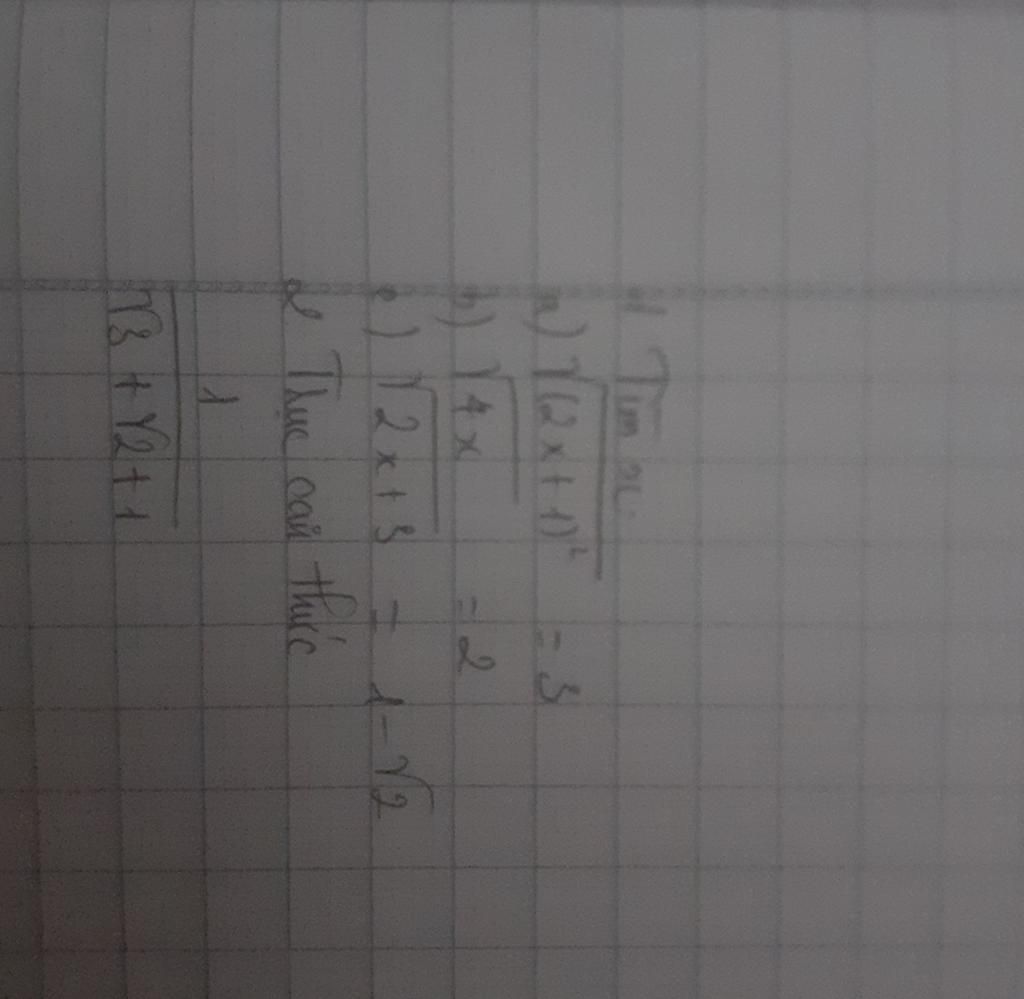 1/ Tìm x:
a) √(2x+1)² = 3
b) √4x = 2
c) √2x+3 = 1-√2
2/ Trục căn thức
1
√3+√2+1